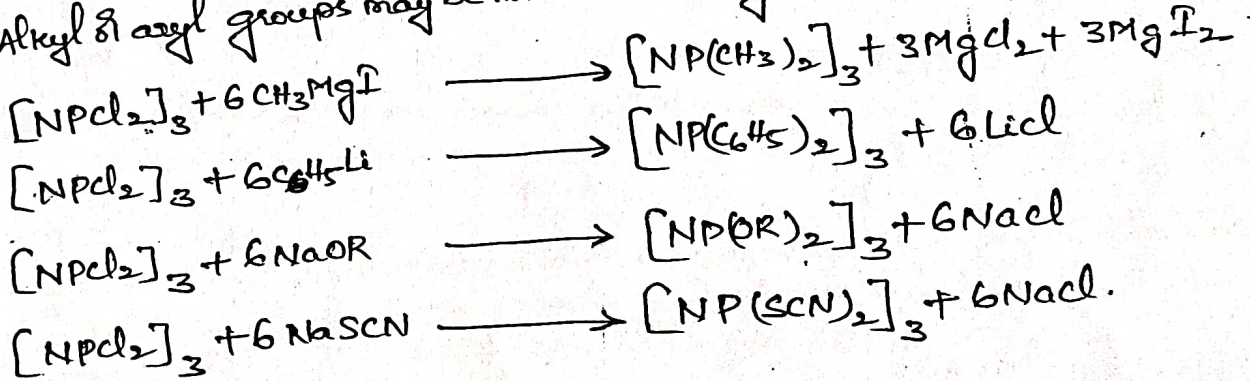 Alkyl & aryl groups may
[NPCl₂]₃ + 6CH₃MgI ⟶ [NP(CH₃)₂]₃ + 3MgCl₂ + 3MgI₂
[NPCl₂]₃ + 6C₆H₅Li ⟶ [NP(C₆H₅)₂]₃ + 6LiCl
[NPCl₂]₃ + 6NaOR ⟶ [NP(OR)₂]₃ + 6NaCl
[NPCl₂]₃ + 6NaSCN ⟶ [NP(SCN)₂]₃ + 6NaCl.